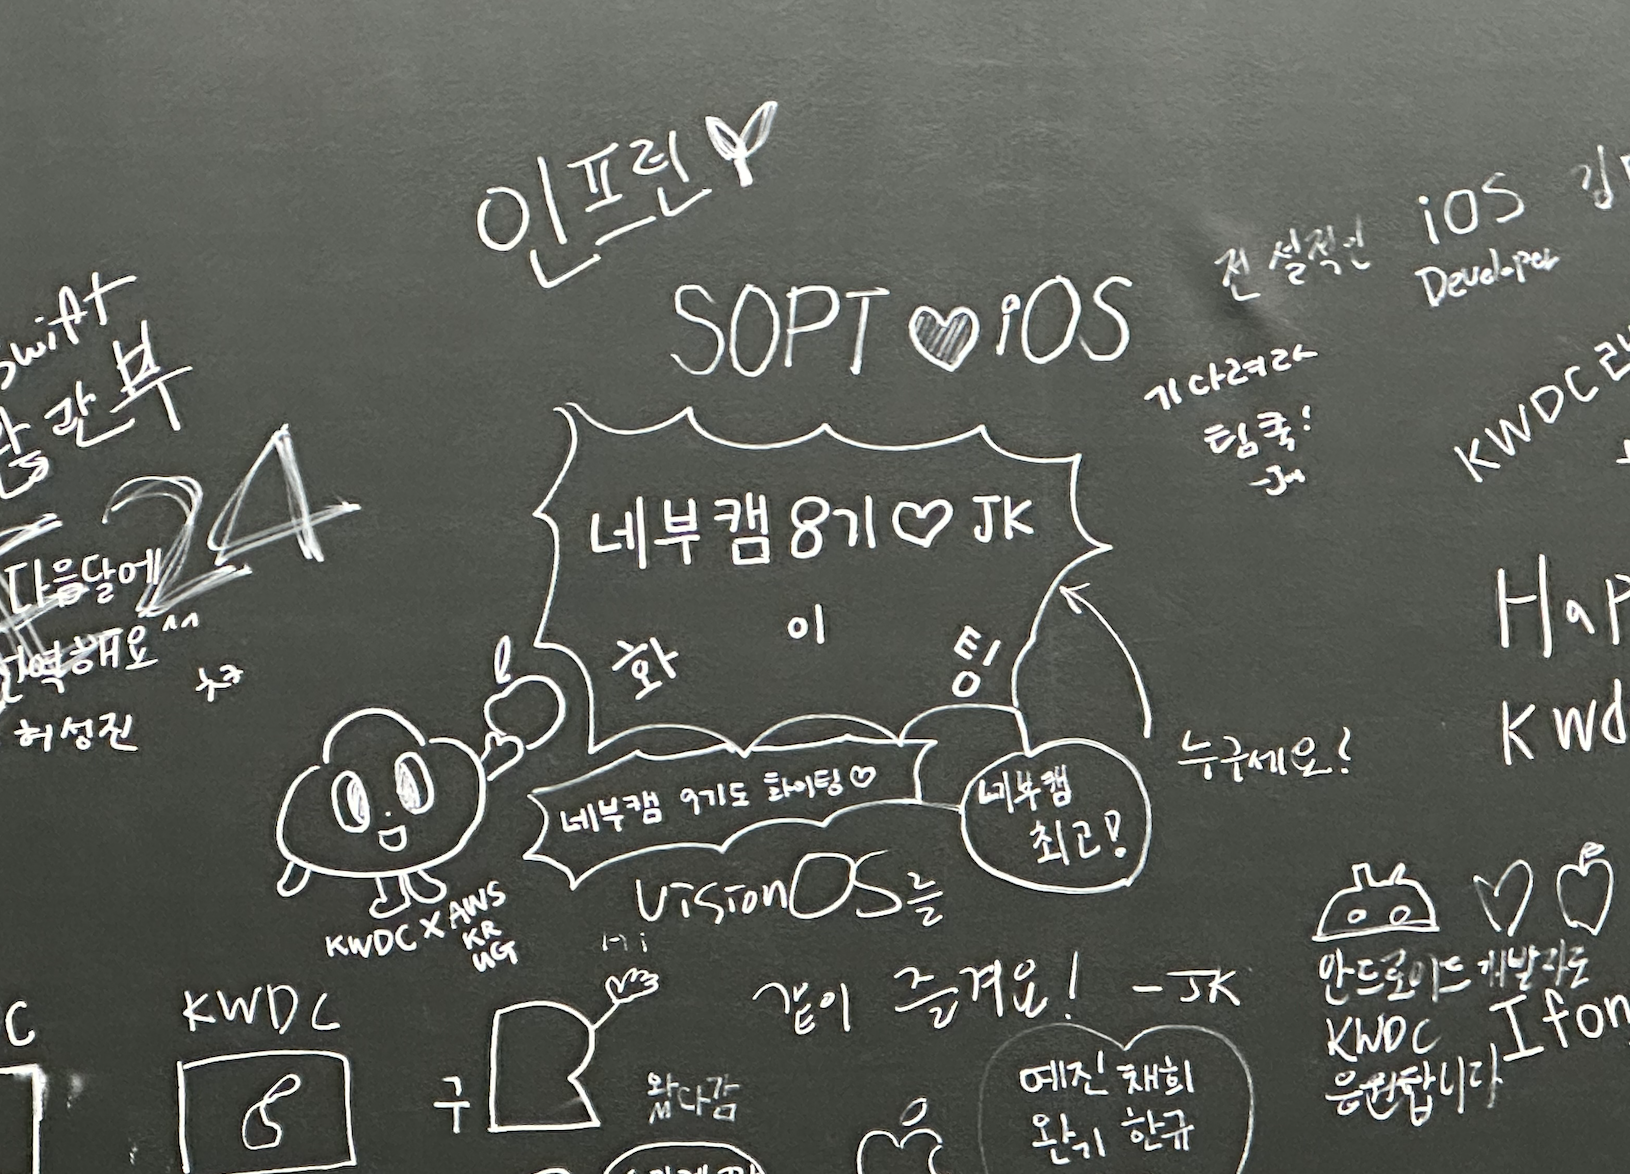 인프런
SOPT iOS
전설적인
iOS
Developer
기다려라
팀쿡!
swift
24
다음달에
허성진
네부캠 8기♡JK
화
이
팅
네부캠 9기도 화이팅♡
네부캠
최고!
누구세요?
KWDC
Hap
Kwd
KWDC X AWS
KR
UG
visionOS를
같이 즐겨요! -JK
Hi
C
KWDC
구
왔다감
예진 채희
완기 한규
안드로이드 개발자도
KWDC
응원합니다
Ifon